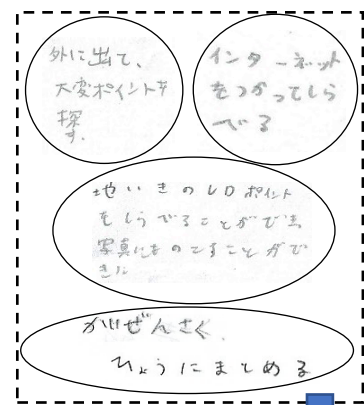 外に出て、
大変ポイントを
探
す。
インターネット
をつかってしら
べる
地いきのLDポイント
をしらべることができ
写真にものこすことがで
きた
かいぜんさく
ひょうにまとめる